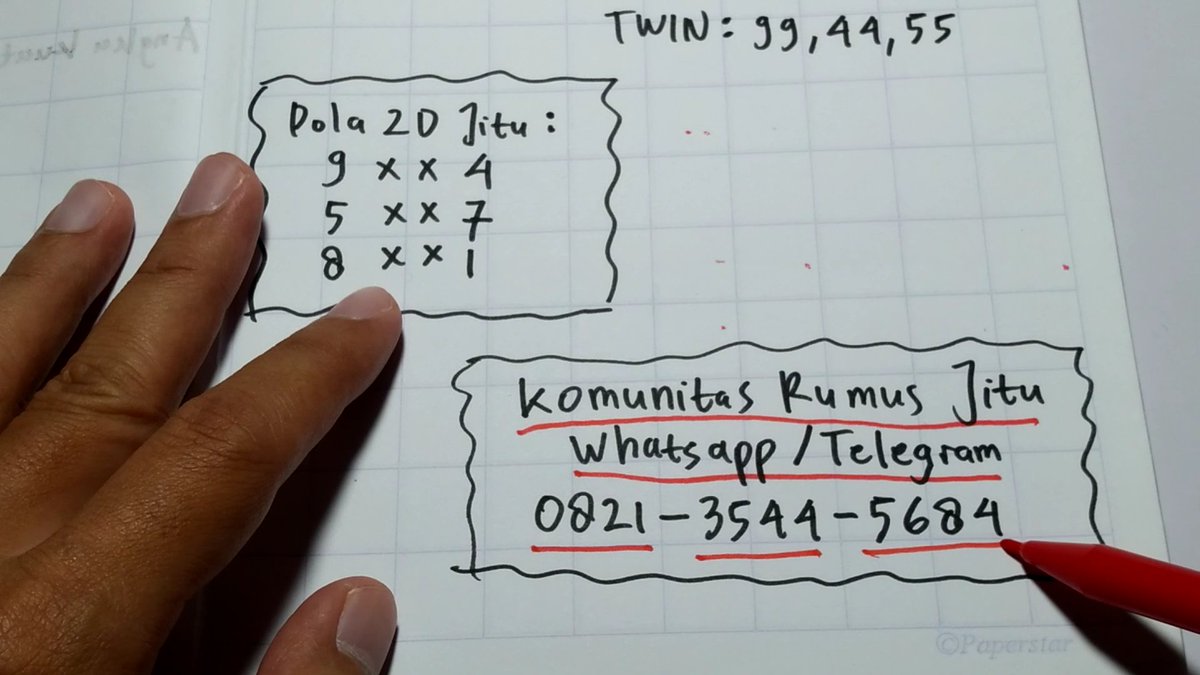 TWIN: 99, 44, 55
Pola 2D Jitu:
9 x x 4
5 x x 7
8 x x 1
Komunitas Rumus Jitu
Whatsapp / Telegram
0821 - 3544 - 5684
©Paperstar